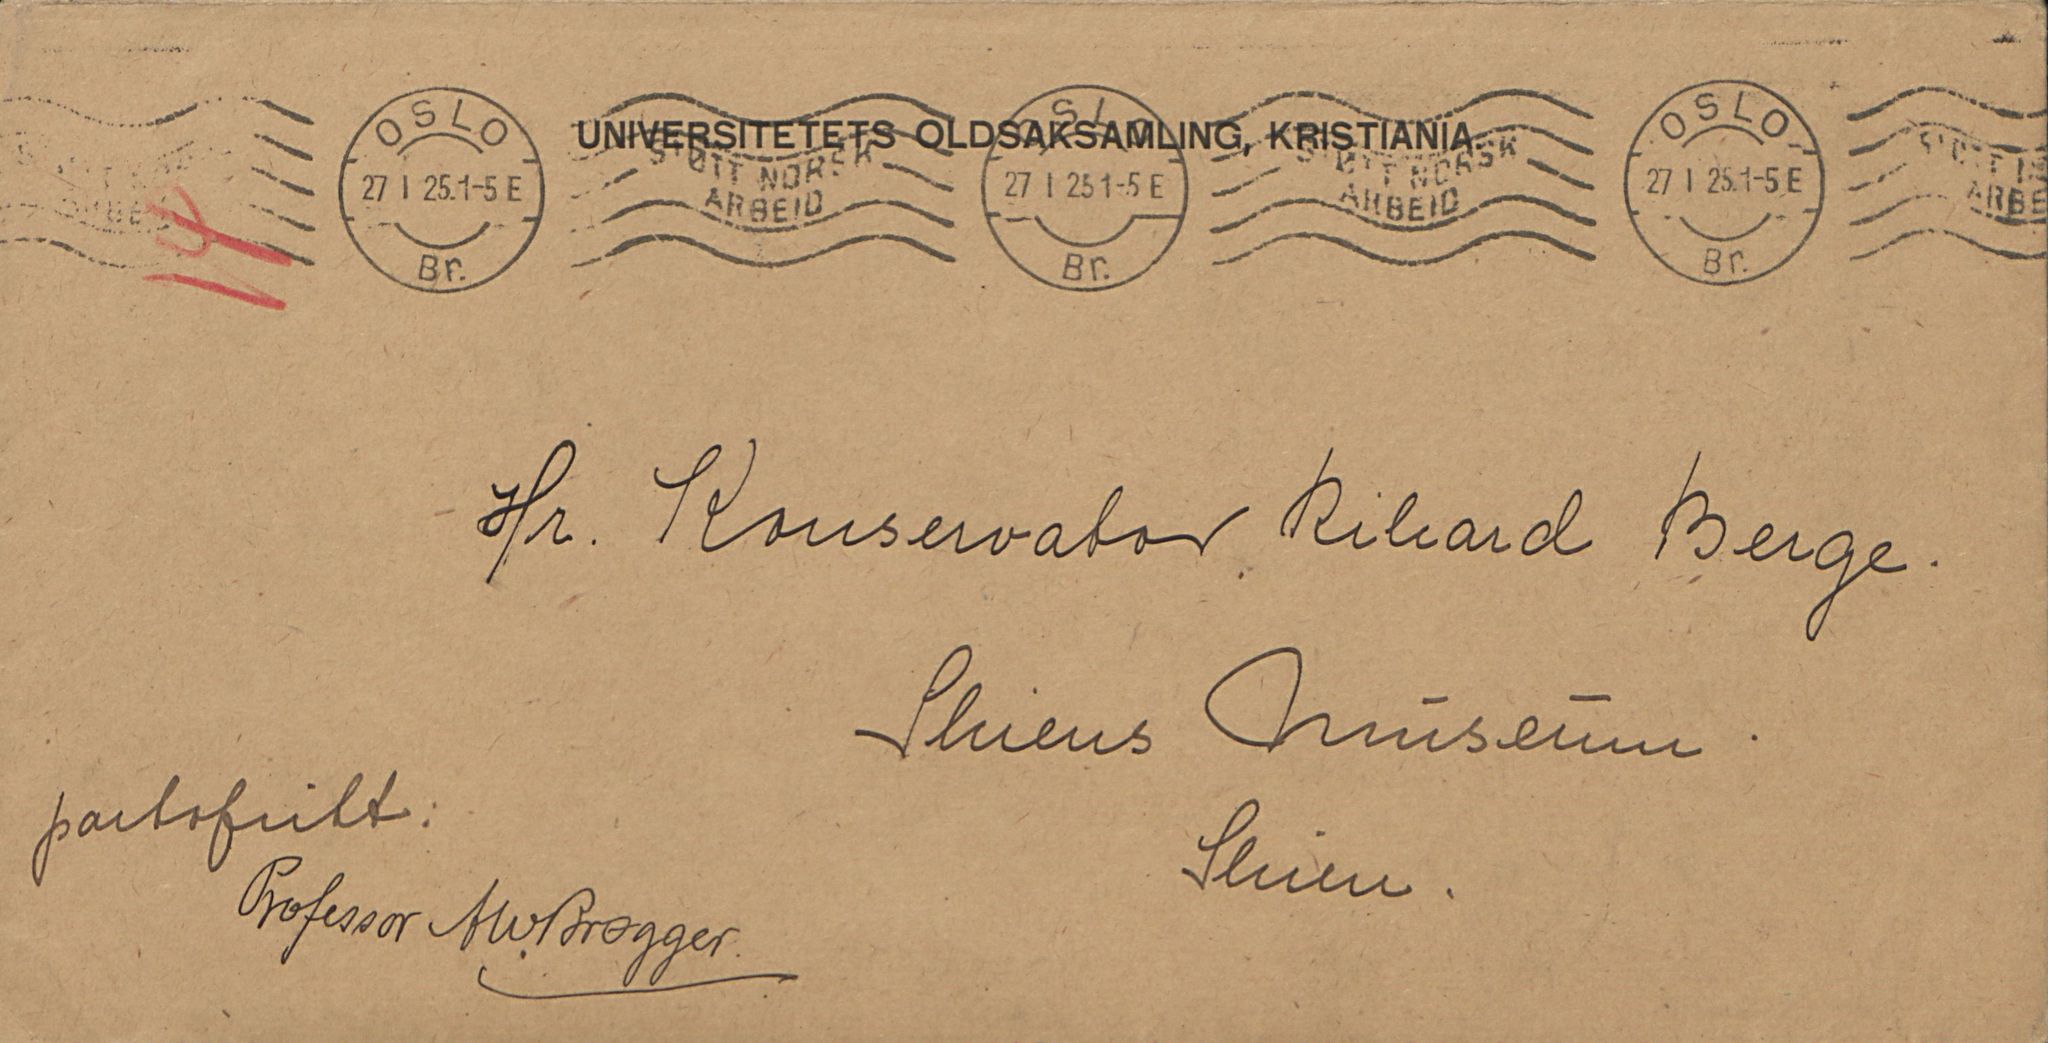 OSLO
27 I 25.1-5 E
Br.
STØTT NORSK
ARBEID
OSLO
27 I 25 1-5 E
Br.
STØTT NORSK
ARBEID
OSLO
27 I 25.1-5 E
Br.
UNIVERSITETETS OLDSAKSAMLING, KRISTIANIA.
Hr. Konservator Rikard Berge.
Skiens Museum.
Skien.
portofritt:
Professor AW. Brøgger.